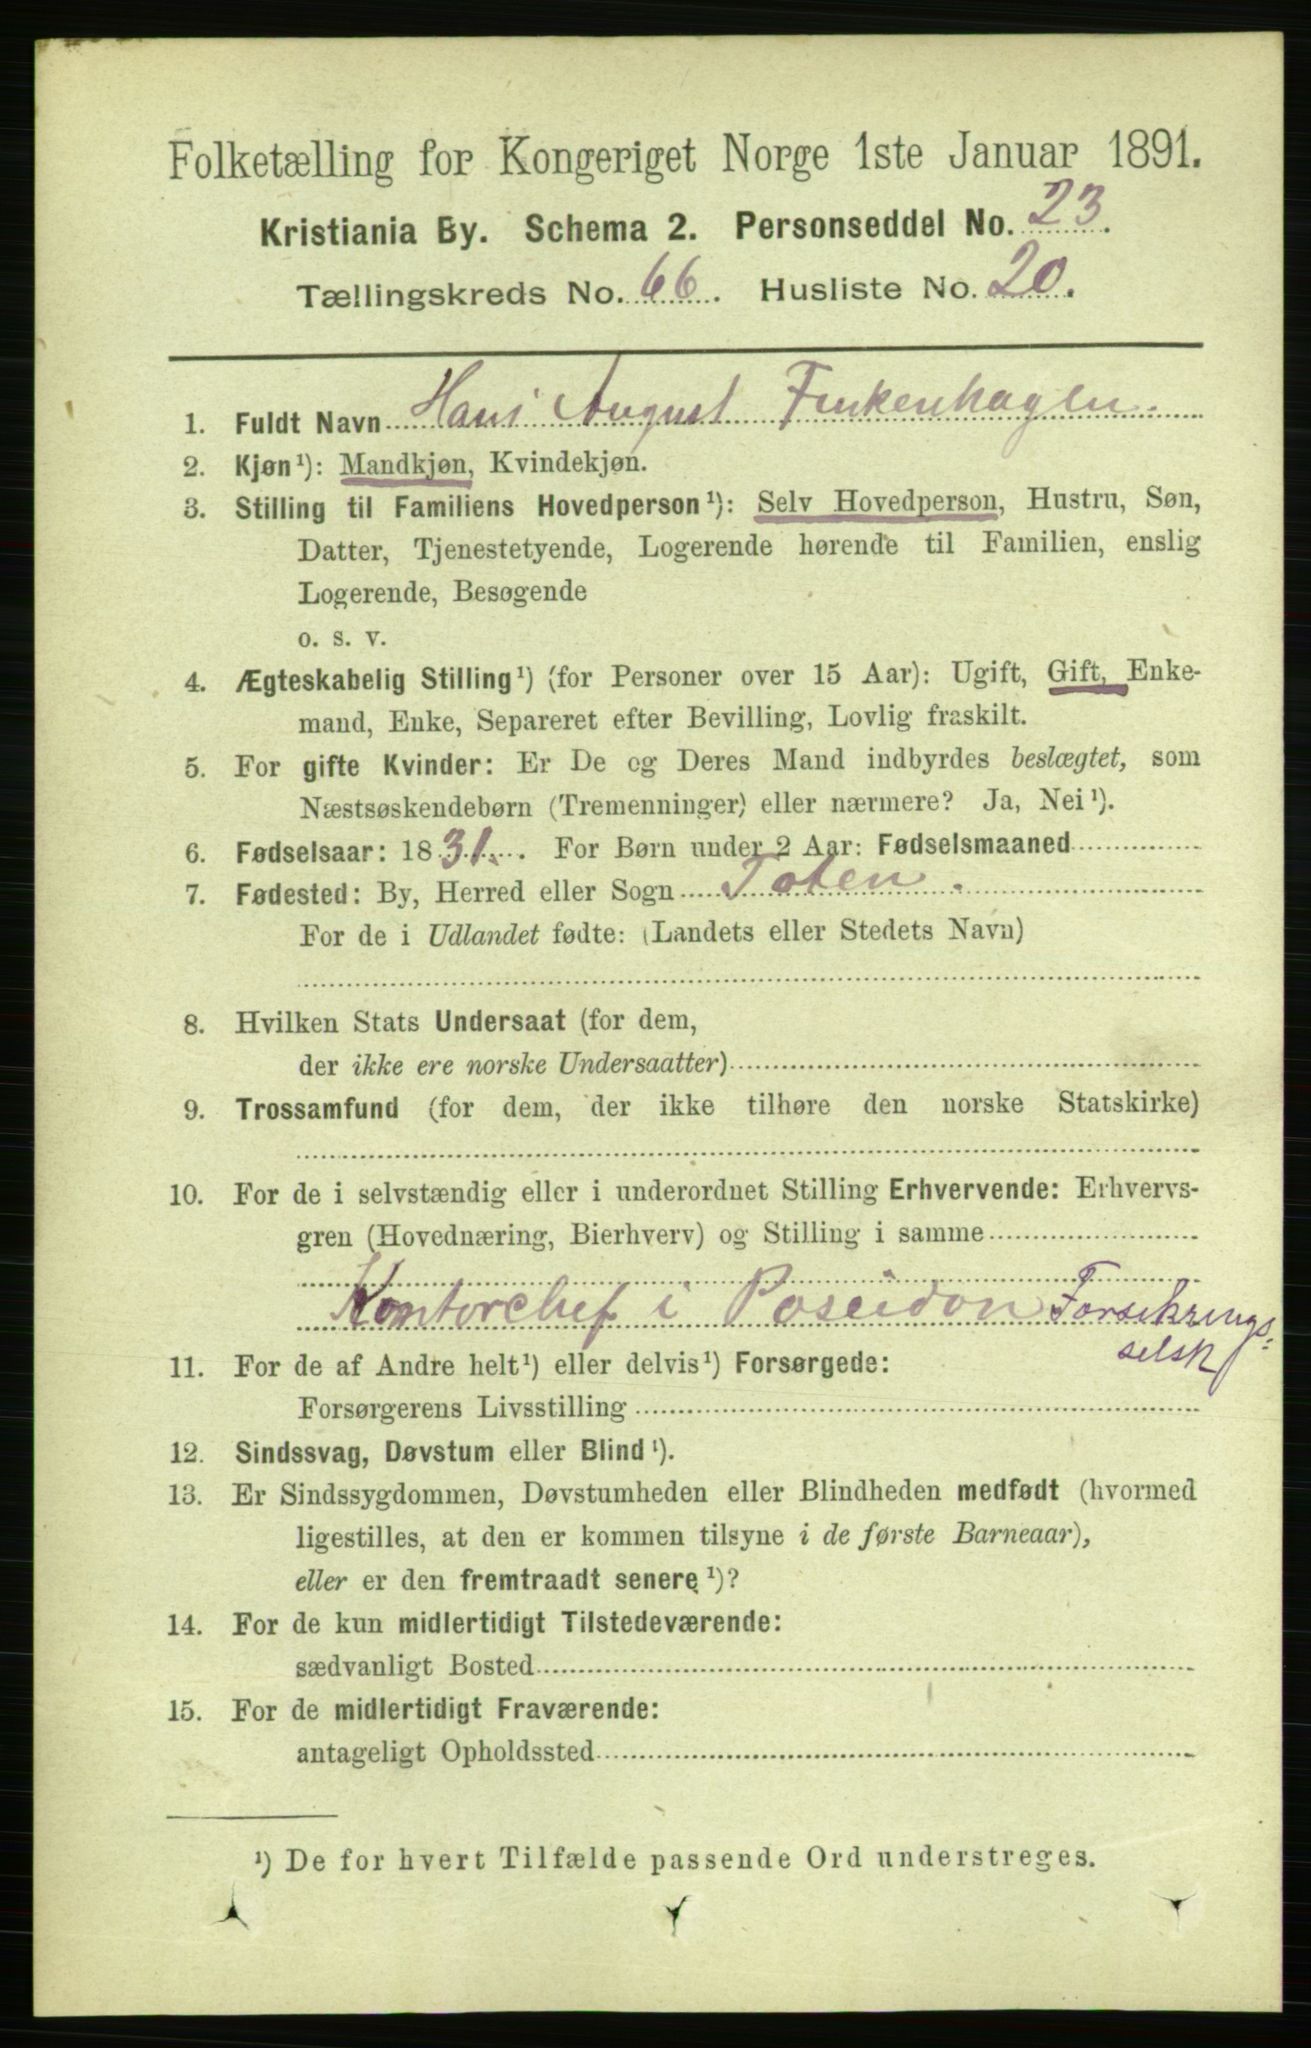 Folketælling for Kongeriget Norge 1ste Januar 1891.
Kristiania By. Schema 2. Personseddel No. 23.
Tællingskreds No. 66. Husliste No. 20.
1. Fuldt Navn Hans August Finkenhagen.
2. Kjøn¹): Mandkjøn, Kvindekjøn.
3. Stilling til Familiens Hovedperson¹): Selv Hovedperson, Hustru, Søn,
Datter, Tjenestetyende, Logerende hørende til Familien, enslig
Logerende, Besøgende
o. s. v.
4. Ægteskabelig Stilling¹) (for Personer over 15 Aar): Ugift, Gift, Enke-
mand, Enke, Separeret efter Bevilling, Lovlig fraskilt.
5. For gifte Kvinder: Er De og Deres Mand indbyrdes beslægtet, som
Næstsøskendebørn (Tremenninger) eller nærmere? Ja, Nei¹).
6. Fødselsaar: 1831. For Børn under 2 Aar: Fødselsmaaned
7. Fødested: By, Herred eller Sogn Toten.
For de i Udlandet fødte: (Landets eller Stedets Navn)
8. Hvilken Stats Undersaat (for dem,
der ikke ere norske Undersaatter)
9. Trossamfund (for dem, der ikke tilhøre den norske Statskirke)
10. For de i selvstændig eller i underordnet Stilling Erhvervende: Erhvervs-
gren (Hovednæring, Bierhverv) og Stilling i samme
Kontorchef i Poseidon Forsikrings=
selsk
11. For de af Andre helt¹) eller delvis¹) Forsørgede:
Forsørgerens Livsstilling
12. Sindssvag, Døvstum eller Blind¹).
13. Er Sindssygdommen, Døvstumheden eller Blindheden medfødt (hvormed
ligestilles, at den er kommen tilsyne i de første Barneaar),
eller er den fremtraadt senere¹)?
14. For de kun midlertidigt Tilstedeværende:
sædvanligt Bosted
15. For de midlertidigt Fraværende:
antageligt Opholdssted
¹) De for hvert Tilfælde passende Ord understreges.